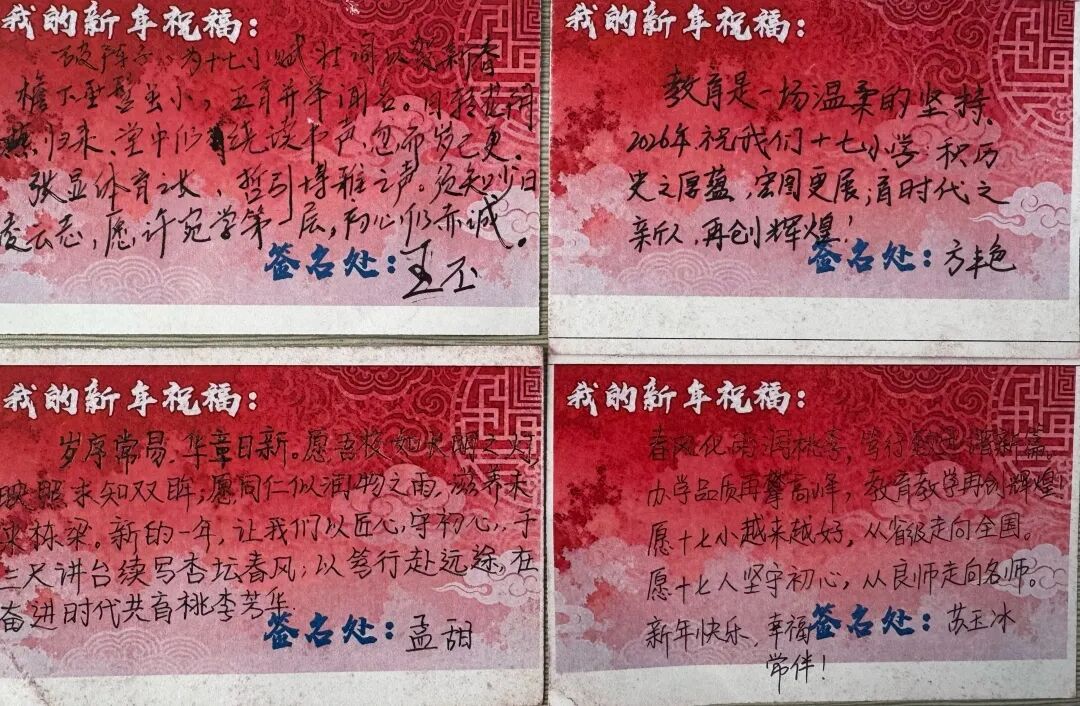 我的新年祝福：
破阵子·为十七小赋壮词以贺新春
檐下 虽小，五育并举闻名。
归来，堂中仍绕读书声，忽而岁已更。
张显体育之长，哲引博雅之声。须知少日
凌云志，愿许宛学第一层，初心仍赤诚。
签名处：王
我的新年祝福：
教育是一场温柔的坚持、
2026年，祝我们十七小学：积历
史之厚蕴，宏图更展；育时代之
新人，再创辉煌！
签名处：方艳
我的新年祝福：
岁序常易，华章日新。愿吾校如长明之灯，
映照求知双眸；愿同仁似润物之雨，滋养未
来栋梁。新的一年，让我们以匠心，守初心，于
三尺讲台续写杏坛春风；以笃行赴远途，在
奋进时代共育桃李芳华。
签名处：孟甜
我的新年祝福：
春风化雨润桃李，笃行致远谱新篇。
办学品质再攀高峰，教育教学再创辉煌！
愿十七小越来越好，从省级走向全国。
愿十七人坚守初心，从良师走向名师。
新年快乐、幸福
常伴！
签名处：苏玉冰